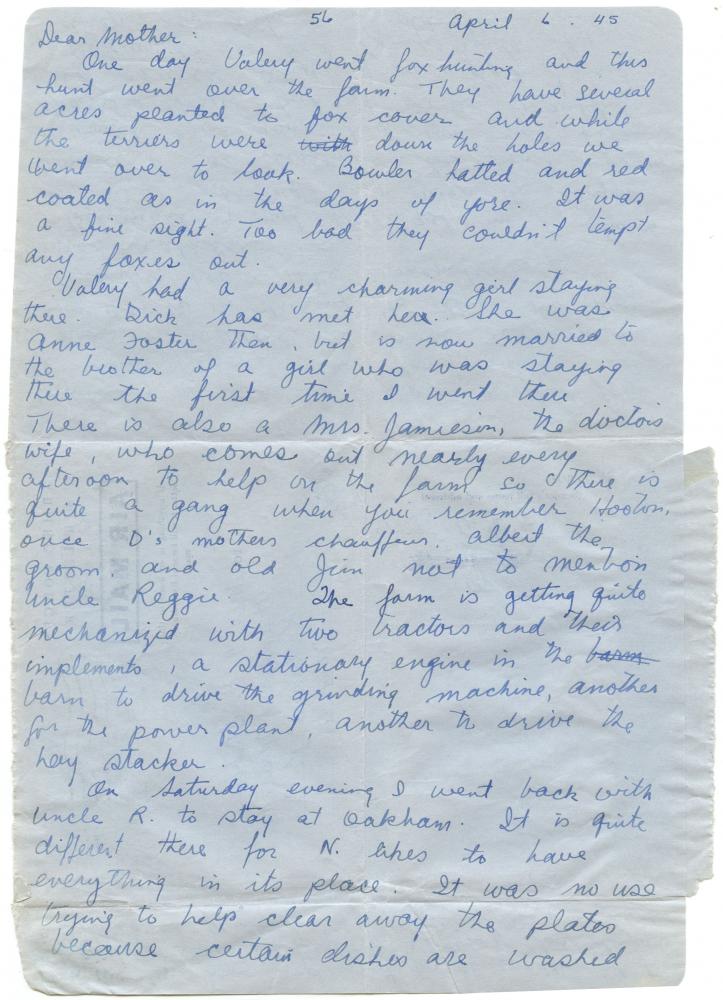 56 April 6. 45
Dear Mother:
One day Valery went fox hunting and this
hunt went over the farm. They have several
acres planted to fox cover and while
the terriers were with down the holes we
went over to look. Bowler hatted and red
coated as in the days of yore. It was
a fine sight. Too bad they couldn't tempt
any foxes out.
Valery had a very charming girl staying
there. Dick has met her. She was
Anne Foster then, but is now married to
the brother of a girl who was staying
there the first time I went there
There is also a Mrs. Jamieson, the doctors
wife, who comes out nearly every
afternoon to help on the farm so there is
quite a gang when you remember Hooton,
once D's mothers chauffeur, albert the
groom, and old Jim not to mention
Uncle Reggie. The farm is getting quite
mechanized with two tractors and their
implements, a stationary engine in the barm
barn to drive the grinding machine, another
for the power plant, another to drive the
hay stacker.
On Saturday evening I went back with
Uncle R. to stay at Oakham. It is quite
different there for N. likes to have
everything in its place. It was no use
trying to help clear away the plates
because certain dishes are washed
AIR MAIL